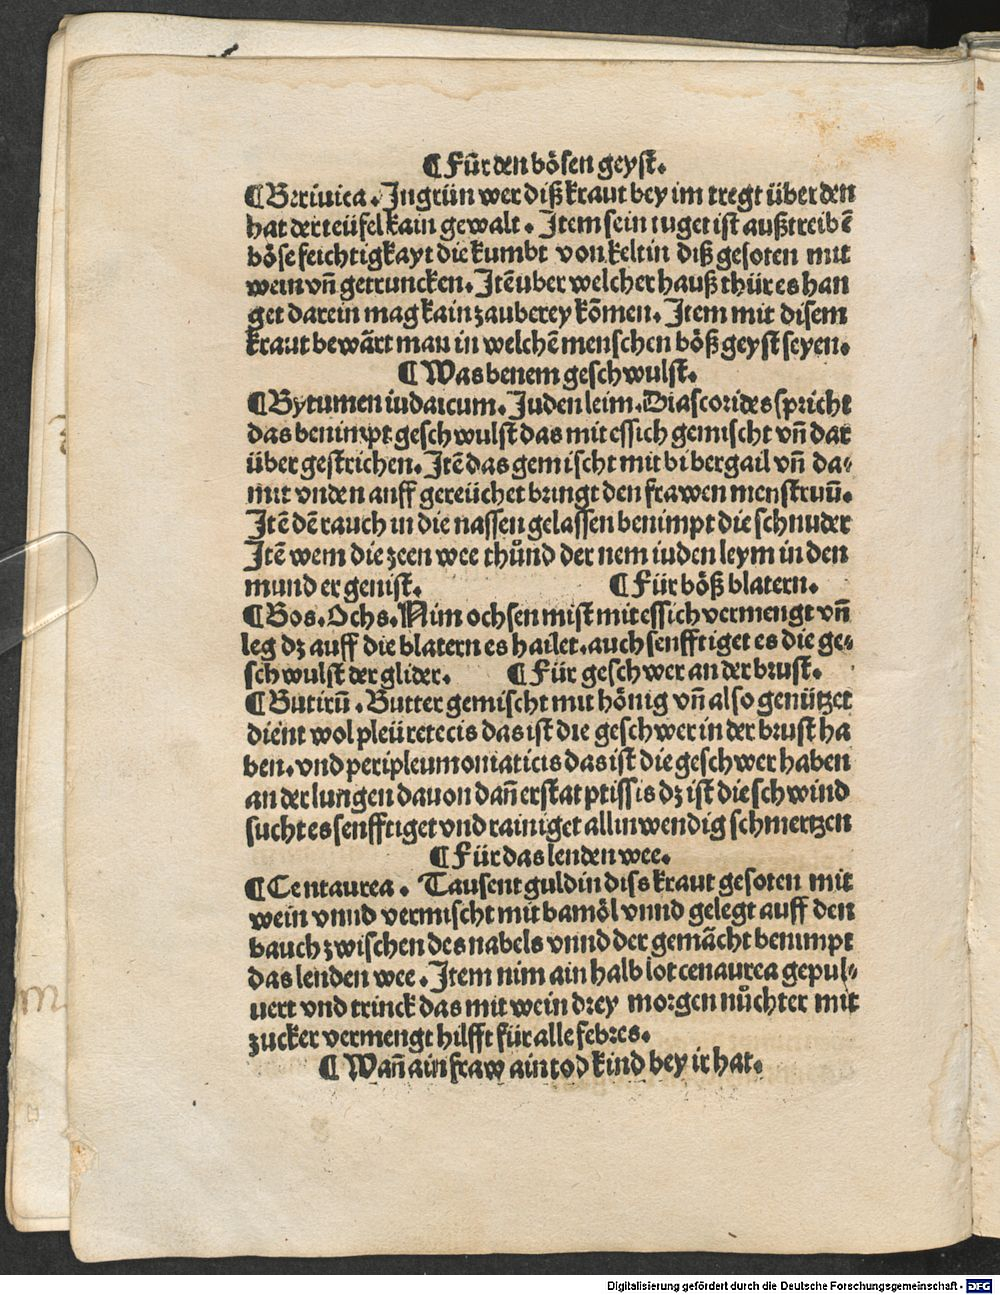 ¶ Für den bösen geyst.
¶ Beriuica. Ingrün wer diß kraut bey im tregt über den
hat der teüfel kain gewalt. Item sein tuget ist außtreibē
böse feichtigkayt die kumbt von keltin diß gesoten mit
wein vn̄ getruncken. Itē uber welcher hauß thür es han
get darein mag kain zauberey kōmen. Item mit disem
kraut bewårt man in welchē menschen böß geyst seyen.
¶ Was benem geschwulst.
¶ Bytumen iudaicum. Juden leim. Diascorides spricht
das benimpt geschwulst das mit essich gemischt vn̄ dar
über gestrichen. Itē das gemischt mit bibergail vn̄ da⸗
mit vnden auff gereüchet bringt den frawen menstruū.
Itē dē rauch in die nassen gelassen benimpt die schnuder
Itē wem die zeen wee thůnd der nem iuden leym in den
mund er genist. ¶ Für böß blatern.
¶ Bos. Ochs. Nim ochsen mist mit essich vermengt vn̄
leg dz auff die blatern es hailet. auch senfftiget es die ge⸗
schwulst der glider. ¶ Für geschwer an der brust.
¶ Butirū. Butter gemischt mit hönig vn̄ also genützet
dient wol pleüretecis das ist die geschwer in der brust ha
ben. vnd peripleumoniaticis das ist die geschwer haben
an der lungen dauon dan̄ erstat ptissis dz ist die schwind
sucht es senfftiget vnd rainiget all inwendig schmertzen
¶ Für das lenden wee.
¶ Centaurea. Tausent guldin diss kraut gesoten mit
wein vnnd vermischt mit bamöl vnnd gelegt auff den
bauch zwischen des nabels vnnd der gemåcht benimpt
das lenden wee. Item nim ain halb lot cenaurea gepul⸗
uert vnd trinck das mit wein drey morgen nůchter mit
zucker vermengt hilfft für alle febres.
¶ Wan̄ ain fraw ain tod kind bey ir hat.
Digitalisierung gefördert durch die Deutsche Forschungsgemeinschaft - DFG